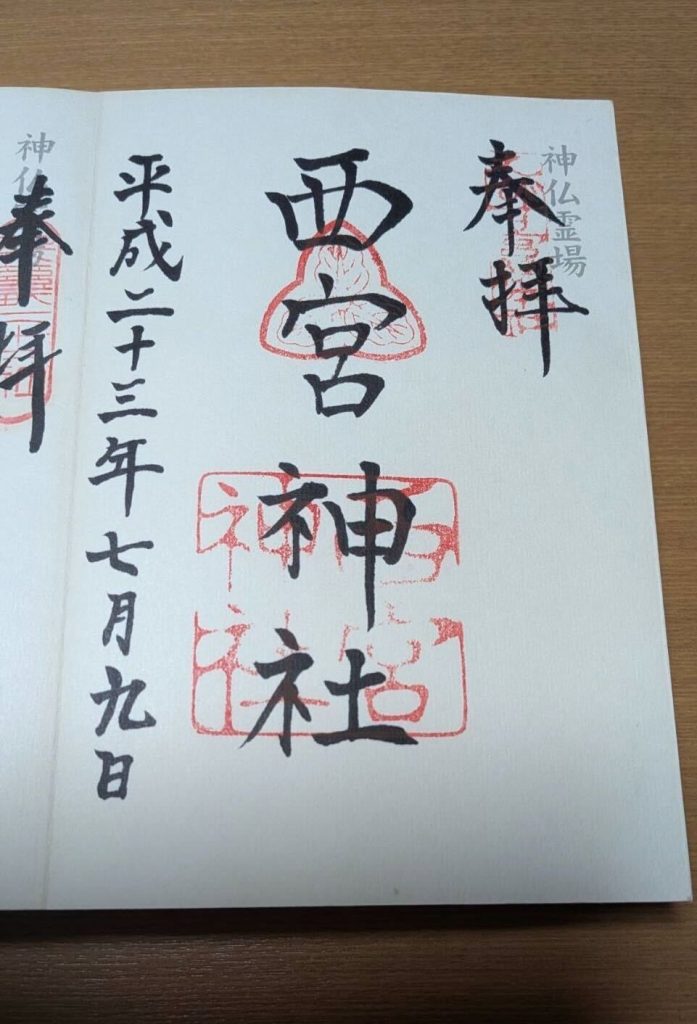 神仏霊場
奉拝
西宮神社
西宮神社
平成二十三年七月九日
神仏
奉拝